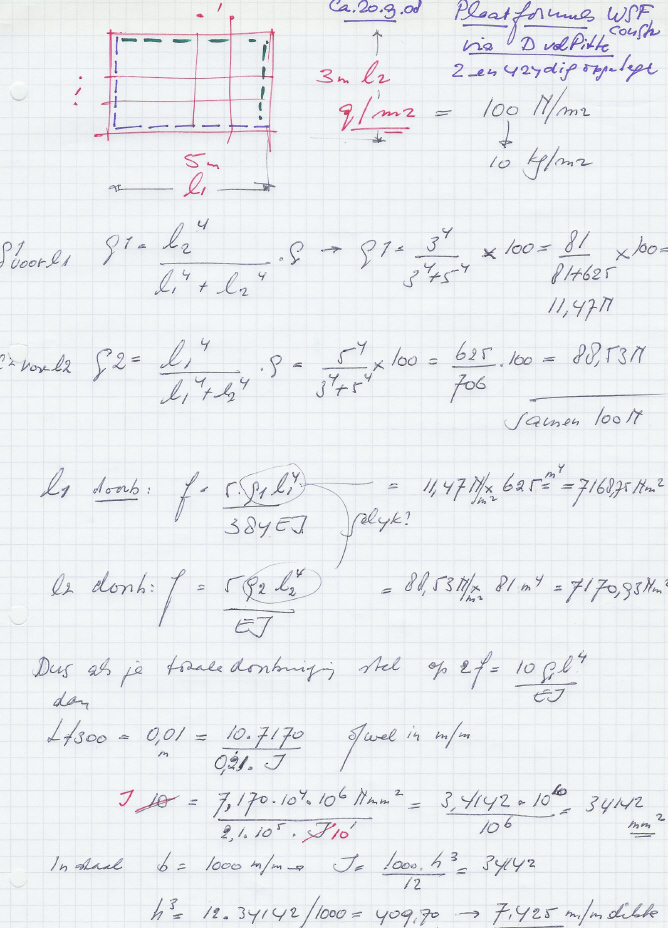 Ca.20.9.08
Plaatformules WSF
constr
via D vd Pitte
2 en 4zydig oppelegd
3m l2
q/m2 = 100 N/m2
10 kg/m2
5m
l1
q1 voor l1 q1 = l2^4 / (l1^4 + l2^4) . q → q1 = 3^4 / (3^4+5^4) × 100 = 81 / (81+625) × 100 =
11,47 N
voor l2 q2 = l1^4 / (l1^4 + l2^4) . q = 5^4 / (3^4+5^4) × 100 = 625 / 706 . 100 = 88,53 N
samen 100 N
l1 doorb: f = 5 q1 l1^4 / 384 EJ = 11,47 N/m2 × 625 m^4 = 7168,75 Nm2
gelyk?
l2 doorb: f = 5 q2 l2^4 / EJ = 88,53 N/m2 × 81 m^4 = 7170,93 Nm2
Dus als je totale doorbuiging stel op 2f = 10 q1 l^4 / EJ
dan
L/300 = 0,01 m = 10.7170 / 0,21. J ofwel in m/m
J 10 = 7,170.10^4.10^6 Nmm2 / 2,1.10^5. J 10^1 = 3,4142 * 10^10 / 10^6 = 34142 mm2
In staal b = 1000 m/m → J = 1000.h^3 / 12 = 34142
h^3 = 12.34142/1000 = 409,70 → 7.425 m/m dikte